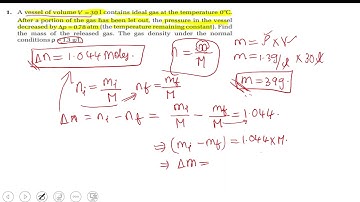 1. A vessel of volume V = 30 l contains ideal gas at the temperature 0°C.
After a portion of the gas has been let out, the pressure in the vessel
decreased by Δp = 0.78 atm (the temperature remaining constant). Find
the mass of the released gas. The gas density under the normal
conditions ρ = 1.3 g/l.
Δn = 1.044 moles.
n = m/M
m = ρ × V
m = 1.3g/l × 30l
m = 39g
n_i = m_i/M n_f = m_f/M
Δn = n_i - n_f = m_i/M - m_f/M = 1.044.
⇒ (m_i - m_f) = 1.044 × M.
⇒ Δm =